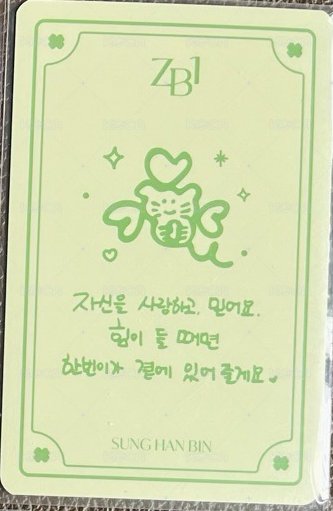 ZB1
자신을 사랑하고, 믿어요.
힘이 들 때면
한빈이가 곁에 있어 줄게요.
SUNG HAN BIN